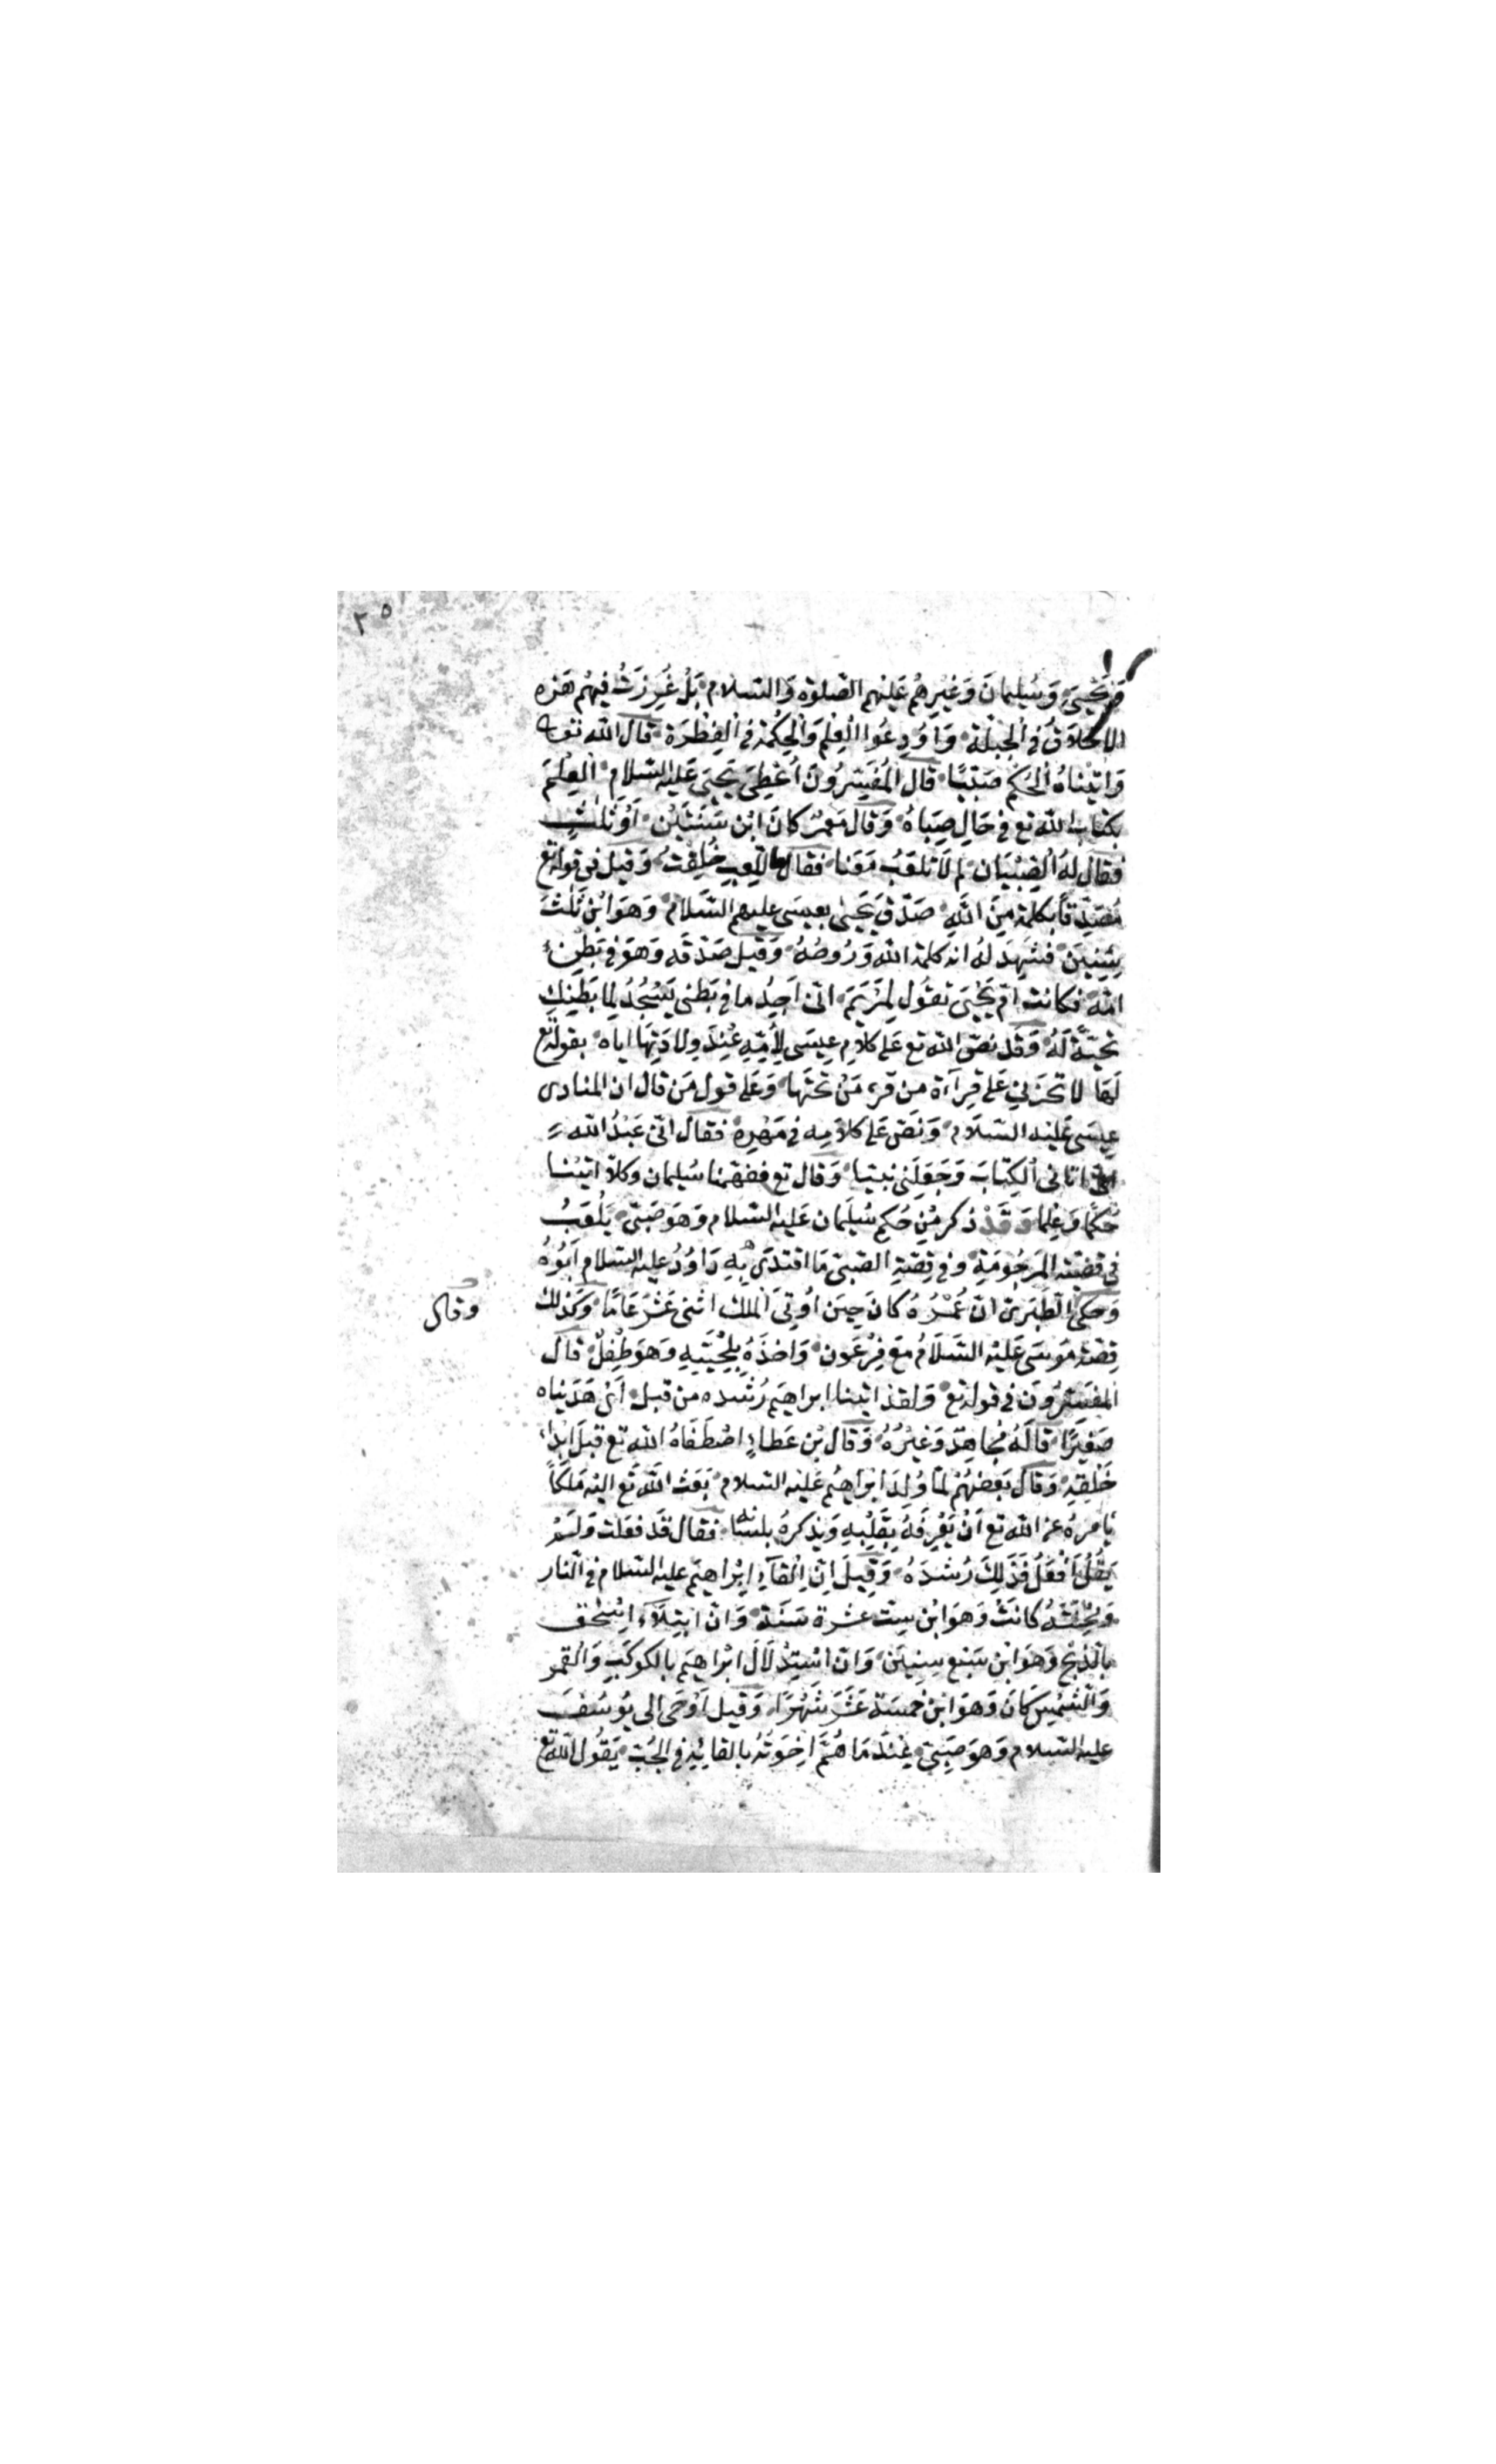 ٢٥
وَيَحْيَى وَسُلَيْمَانَ وَغَيْرِهِمْ عَلَيْهِمُ الصَّلوٰة وَالسَّلام بَلْ غُرِزَتْ فِيهِمْ هَذِهِ
الاَخْلَاقُ فى الْجِبِلَّةِ وَاُودِعُوا الْعِلْمَ وَالْحِكْمَةَ فى الْفِطْرَة قال الله تعا
وَاٰتَيْنَاهُ الْحُكْمَ صَبِيًّا قال الْمُفَسِّرُونَ اُعْطِىَ يَحْيَى عَلَيْهِ السَّلام الْعِلْمَ
بكتاب الله تع فى حَالِ صِبَاهُ وَقَالَ مَعْمَرٌ كَانَ ابْنَ سَنَتَيْنِ اَوْ ثَلٰثٍ
فقال لَهُ الصِّبْيَان لم لَا تَلْعَبُ مَعَنا فقال اللعب خُلِقْتُ وَقيلَ فى قوله تع
مُصَدِّقًا بكلمة مِنَ اللَّهِ صَدَّقَ يَحْيىٰ بعِيسَى عليهم السَّلام وَهوَ ابْنُ ثَلٰثَ
سِنِينَ فشَهِدَ لهُ انه كلمة الله وَرُوحُهُ وَقيل صَدَّقَه وَهوَ فى بَطْنِ
امّه فكانت امّ يَحْيَى تقُول لِمَرْيَمَ انى اَجِدُ ما فى بَطْنى يَسْجُدُ لِمَا بَطْنِكِ
تحيّة لَهُ وَقَدْ نصّ الله تع عَلى كلامِ عِيسَى لِأُمِّهِ عِنْدَ وِلَادَتِهَا اياه بقوله تع
لَهَا لا تَحْزَنِى عَلى قِرآءة من قرء مَنْ تحتَها وَعَلى قول مَن قال ان المنادى
عِيسَى عَليْهِ السَّلَام وَنَصَّ عَلى كلامِه فى مَهْدِهِ فقال انّى عَبْدُ الله
اٰتانى الْكِتَابَ وَجَعَلَنى نبيّا وَقال تع ففهمنا سُليمان وكلا اتينا
حُكْمًا وَعِلما وَقَدْ ذكر مِنْ حُكمِ سُلَيمان عَليه السّلام وَهوَ صَبىّ يَلْعَبُ
فى قضيّة المَرجُومَةِ وَفى قِصّةِ الصّبىّ مَا اقتدى بِهِ دَاوُدُ عليه السلام اَبُوهُ
وَحكى الطّبَرىّ انّ عُمْرَهُ كانَ حِينَ اُوتِىَ الْملك اثنى عَشَرَ عَامًا وَكذلك
وقال
قصّة مُوسَى عَليْه السَّلَامُ مَع فِرْعَون وَاَخذهُ بِلِحْيَتِهِ وَهوَ طِفْلٌ قال
الْمفسّرُونَ فى قوله تع وَلقد اتينا ابراهيم رُشده من قبل اَىْ هَدَيْناه
صَغِيرًا قَالَهُ مُجَاهِدٌ وَغَيْرُهُ وَقال بْن عَطاءٍ اصْطَفَاهُ الله تع قبلَ ابداء
خَلْقِهِ وَقال بَعضُهُمْ لمّا وُلِدَ ابْرَاهِيمُ عَليْه السلام بَعَثَ الله تع اليْهِ مَلَكًا
يَامرهُ عن الله تع اَنْ يَعْرِفَهُ بِقَلْبِهِ وَيذكرَهُ بلسانه فقال قَد فعَلت وَلَمْ
يَقُلْ اَفْعَلُ فَذلِكَ رُشدَهُ وَقِيلَ اِنّ اِلْقَآءَ اِبْراهيم عليه السلام فى النّار
وَمِحْنَتَهُ كانَتْ وَهوَ ابْن سِت عشرة سَنَة وَانّ ابتِلآءَ اِسْحٰق
بالذّبْح وَهوَ ابْن سَبْع سِنِينَ وَان اسْتِدْلَالَ ابْراهيم بالكوكَبِ وَالقمر
وَالشّمْسِ كانَ وَهوَ ابن خمسَة عَشَرَ شَهْرًا وَقيل اَوْحَى الى يُوسُفَ
عليه السلام وَهوَ صَبِىّ عِندَ مَا هَمَّ اِخْوَتُهُ بالقائِهِ فى الجُبّ يَقُول الله تع